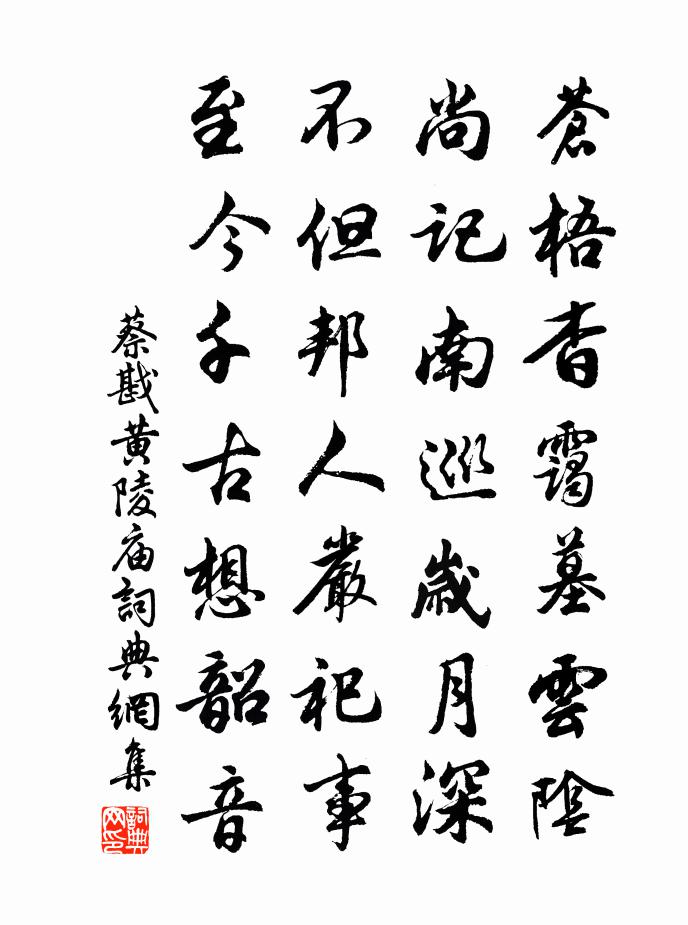 蒼梧杳靄墓雲陰
尚記南巡歲月深
不但邦人嚴祀事
至今千古想韶音
蔡戡黄陵庙詞典網集
詞典网印